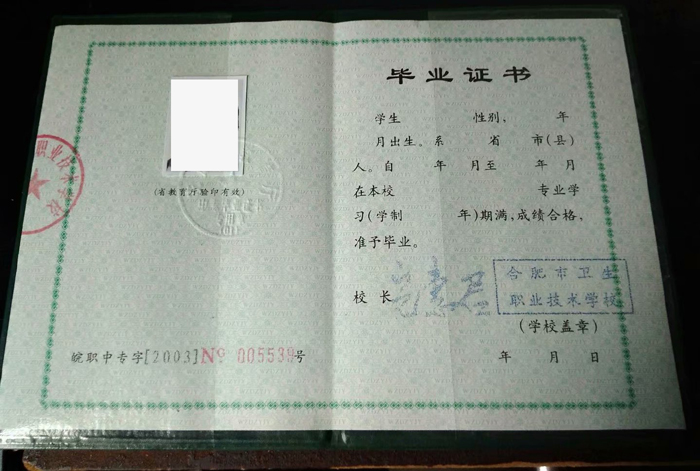 毕业证书
学生 性别, 年
月出生。系 省 市(县)
人。自 年 月至 年 月
在本校 专业学
习(学制 年)期满,成绩合格,
准予毕业。
校长
合肥市卫生
职业技术学校
(学校盖章)
年 月 日
职业技术学校
(省教育厅验印有效)
皖职中专字[2003]№ 005539号